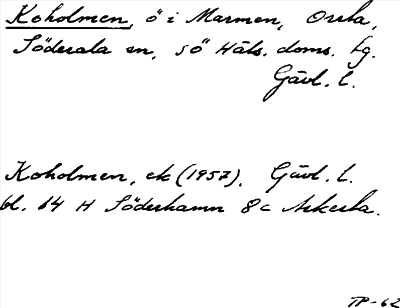 Koholmen, ö i Marmen, Orsta,
Söderala sn, sö Häls. doms. fg.
Gävl. l.
Koholmen, ek (1957). Gävl. l.
bl. 14 H Söderhamn 8c Askesta.
TP-62